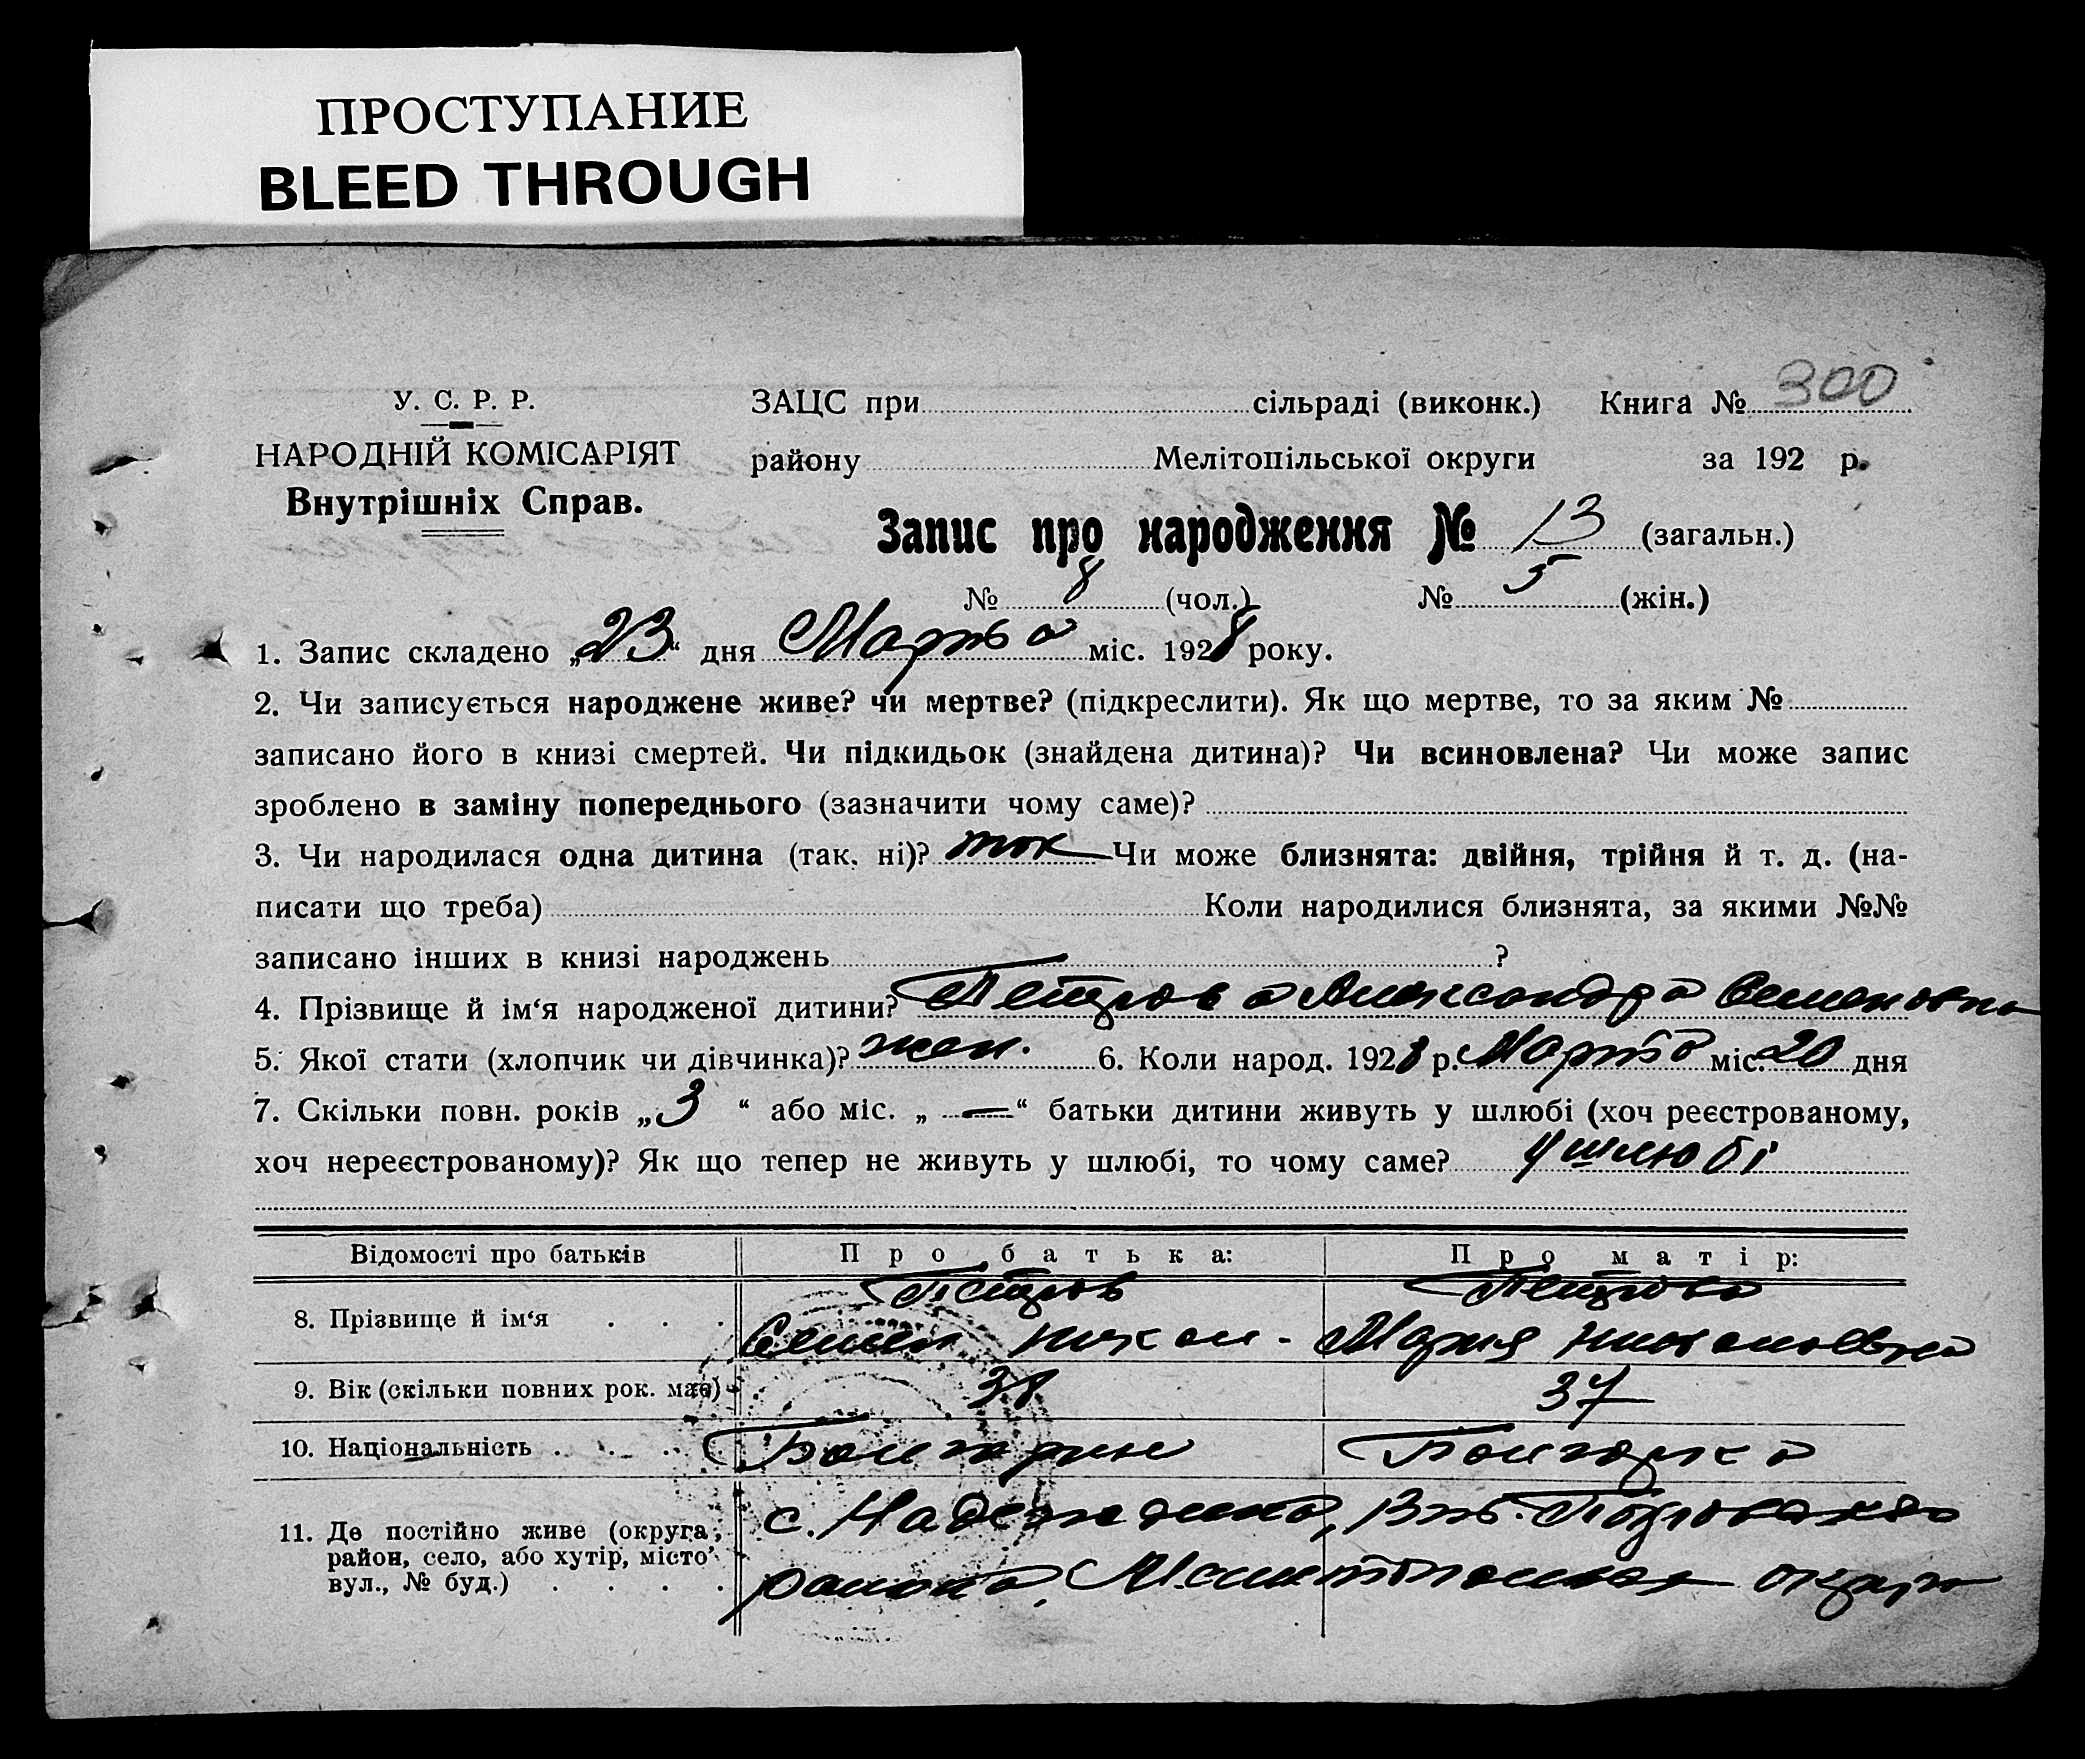 ПРОСТУПАНИЕ
BLEED THROUGH
У. С. Р. Р.
НАРОДНІЙ КОМІСАРІЯТ
Внутрішніх Справ.
ЗАЦС при сільраді (виконк.) Книга № 300
району Мелітопільської округи за 192 р.
Запис про народження № 13 (загальн.)
№ 8 (чол.) № 5 (жін.)
1. Запис складено „23“ дня Марта міс. 1928 року.
2. Чи записується народжене живе? чи мертве? (підкреслити). Як що мертве, то за яким №
записано його в книзі смертей. Чи підкидьок (знайдена дитина)? Чи всиновлена? Чи може запис
зроблено в заміну попереднього (зазначити чому саме)?
3. Чи народилася одна дитина (так, ні)? так Чи може близнята: двійня, трійня й т. д. (на-
писати що треба) Коли народилися близнята, за якими №№
записано інших в книзі народжень ?
4. Прізвище й ім‘я народженої дитини? Петрова Александра Семеновна
5. Якої стати (хлопчик чи дівчинка)? жен. 6. Коли народ. 1928 р. Марта міс. 20 дня
7. Скільки повн. років „3“ або міс. „—“ батьки дитини живуть у шлюбі (хоч реєстрованому,
хоч нереєстрованому)? Як що тепер не живуть у шлюбі, то чому саме? у шлюбі
Відомості про батьків Про батька: Про матір:
8. Прізвище й ім‘я . . . Петров Петрова
Семен Никол- Мария Николаевна
9. Вік (скільки повних рок. має) 38 37
10. Національність . . . Болгарин Болгарка
11. Де постійно живе (округа, район, село, або хутір, місто вул., № буд.) . . . .
с. Надеждино,
района, Мелитопольская округа